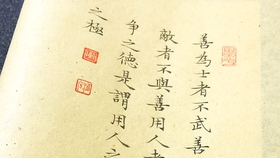 善為士者不武善
敵者不與善用人者
争之德是謂用人之
之極